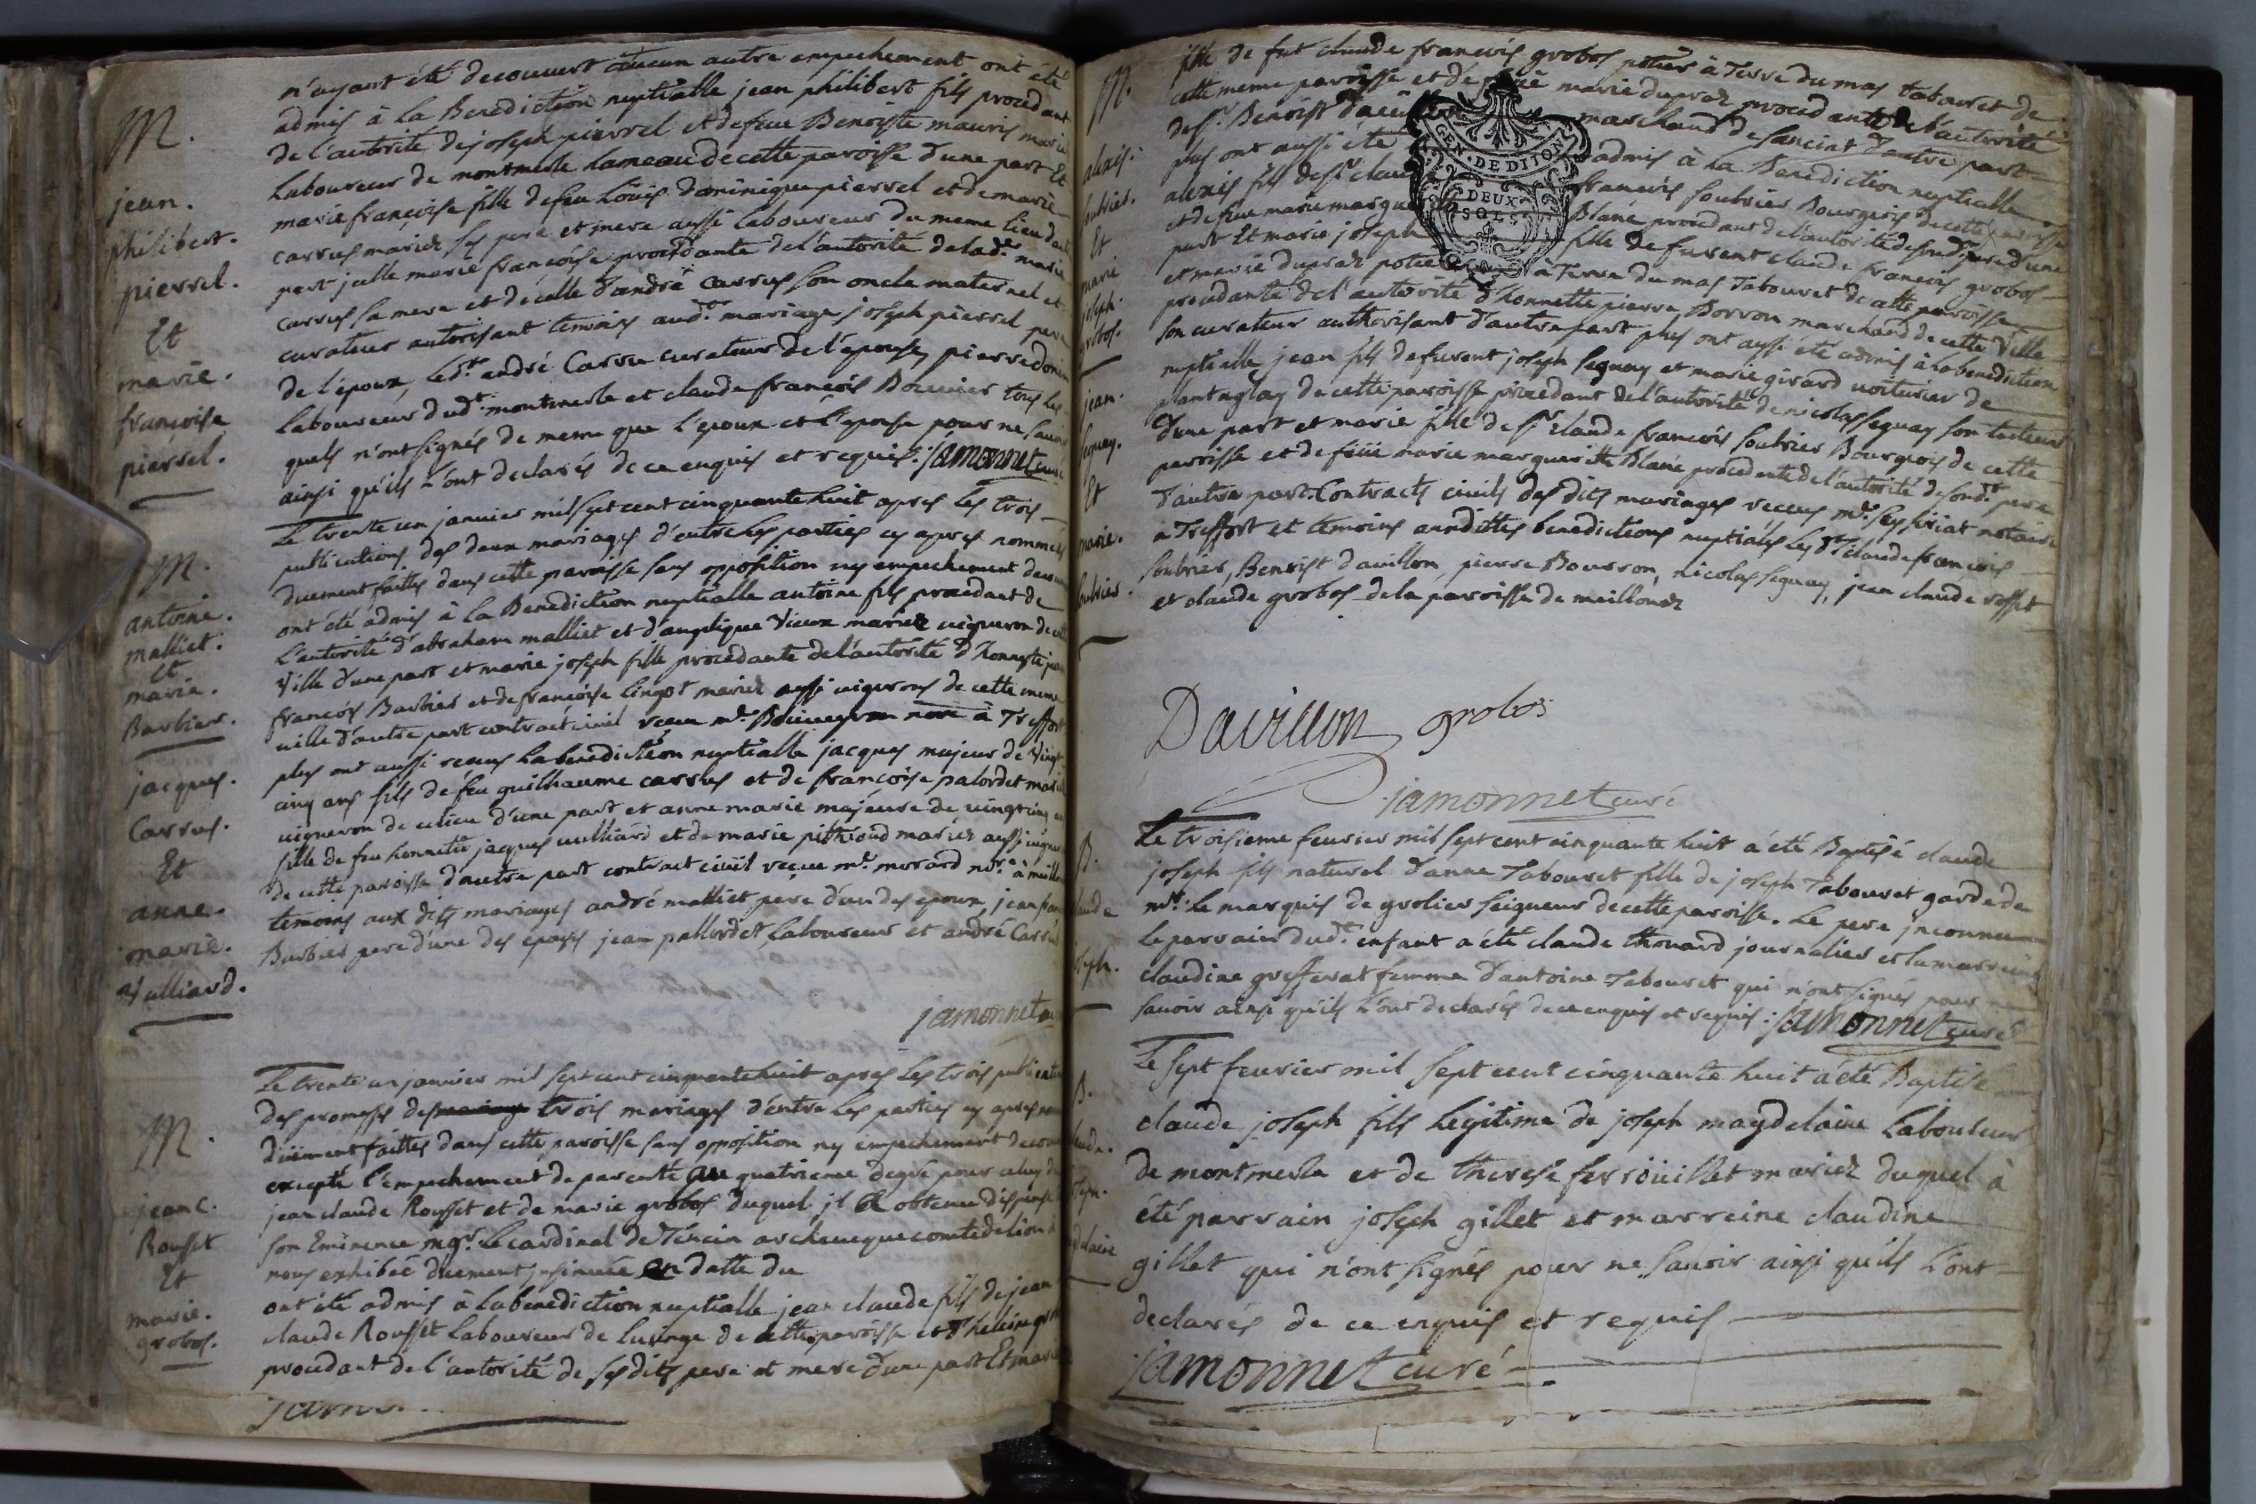 n'ayant été decouvert aucun autre empechement ont été
admis à la Benediction nuptialle jean philibert fils procedant
de l'autorité de joseph pierrel et de feue Benoiste mauris mariez
Laboureur de montmerle hameau de cette paroisse d'une part Et
marie françoise fille de feu Loüis dominique pierrel et de marie
carrus mariez ses pere et mere aussi laboureur du meme lieu d'autre
part jcelle marie françoise procedante de l'autorité de lad.e marie
carrus sa mere et de celle d'andré carrus son oncle maternel et
curateur autorisant temoins aud.t mariage joseph pierrel pere
de l'époux, led.t andré Carru curateur de l'épouse, pierre
Laboureur dud.t montmerle et claude françois Bouvier tous les
quels n'ont signés de meme que l'epoux et l'epouse pour ne savoir
ainsi qu'ils l'ont declarés de ce enquis et requis. jamonnet curé
M.
jean.
philibert.
pierrel.
Et
marie.
françoise
pierrel.
Le trente un janvier mil sept cent cinquante huit apres les trois
publications des deux mariages d'entre les parties cy apres nommées
duement faittes dans cette paroisse sans opposition ny empechement
ont été admis à la Benediction nuptialle antoine fils procedant de
L'autorité d'abraham malliet et d'angelique Vieux mariez vigneron de cette
Ville d'une part et marie joseph fille procedante de l'autorité d'honneste jean
françois Barbier et de françoise lingot mariez aussi vignerons de cette meme
ville d'autre part contract civil receu m.e nore à Treffort
plus ont aussi receus La benediction nuptialle jacques majeur de Vingt
cinq ans fils de feu guilhaume carrus et de françoise palordet mariez
vigneron de ce lieu d'une part et anne marie majeure de vingt cinq ans
fille de feu honnette jacques vulliard et de marie pithioud mariez aussi
de cette paroisse d'autre part contract civil reçeu m.e morard no.re à
temoins aux dits mariages andré malliet pere d'un des epoux, jean
Barbier pere d'une des epouses jean pallordet Laboureur et andré Carrus
jamonnet
M.
antoine.
malliet.
et
marie.
Barbier.
jacques.
Carrus.
Et
anne.
marie.
Vulliard.
Le trente un janvier mil sept cent cinquante huit apres Les trois publications
des promesses des mariage trois mariages d'entre Les parties cy apres
düement faittes dans cette paroisse sans opposition ny empechement
excepté l'empechement de parenté au quatrieme degré pour celuy de
jean claude Rousset et de marie grobos duquel jl a obtenu dispense
son Eminence mgr. Le cardinal de Tencin archeveque comte de lion
nous exhibée duement jnsinuée en datte du
ont été admis à la benediction nuptialle jean claude fils de jean
claude Rousset laboureur de lucinge de cette paroisse et d'heleine
procedant de l'autorité de ses dits pere et mere d'une part Et marie
jamo.
M.
jean C.
Rousset
Et
marie.
grobos.
fille de fut claude françois grobos potier à Terre du mas tabouret de
cette meme paroisse et de marie duprez procedante de l'autorité
de s.r Benoist marchand de d'autre part
plus ont aussi été admis à la Benediction nuptialle
alexis fils de s.r françois soubrier Bourgeois de cette paroisse
et de feue marie Blanc procedant de l'autorité de sond.t pere d'une
part Et marie joseph fille de furent claude françois grobos
et marie duprez potier à Terre du mas Tabouret de cette paroisse
procedante de l'autorité d'honnette pierre Borron marchand de cette Ville
son curateur authorisant d'autre part plus ont aussi été admis à la benediction
nuptialle jean fils de furent joseph seguay et marie girard voiturier de
plantaglay de cette paroisse procedant de l'autorité de nicolas seguay son tuteur
d'une part et marie fille de s.r claude françois soubrier Bourgeois de cette
paroisse et de feüe marie marguerite Blanc procedente de l'autorité de sond.t pere
d'autre part. Contracts civils des dits mariages receus m.e notaire
à Treffort et temoins auxdittes benedictions nuptiales les s.r claude françois
soubrier, Benoist davillon, pierre Bourron, nicolas seguay, jean claude rosset
et claude grobos de la paroisse de meillonaz
Davillon grobos
jamonnet curé
M.
alexis.
soubrier.
Et
marie
joseph.
grobos.
jean.
seguay.
Et
marie.
soubrier.
Le troisieme fevrier mil sept cent cinquante huit à été Baptisé claude
joseph fils naturel d'anne Tabouret fille de joseph Tabouret garde de
m.r le marquis de grolier seigneur de cette paroisse. Le pere jnconnu
Le parrain dud.t enfant a été claude thouard journalier et la marraine
claudine grefferat femme d'antoine Tabouret qui n'ont signés pour ne
savoir ainsi qu'ils l'ont declarés de ce enquis et requis. jamonnet curé
B.
Le sept fevrier mil sept cent cinquante huit à été Baptisé
claude joseph fils Legitime de joseph maydelaine Laboureur
de montmerle et de therese ferroüillet mariez duquel à
été parrain joseph gillet et marreine claudine
gillet qui n'ont signés pour ne savoir ainsi qu'ils l'ont
declarés de ce enquis et requis
jamonnet curé
B.
GEN. DE DIJON
DEUX
SOLS